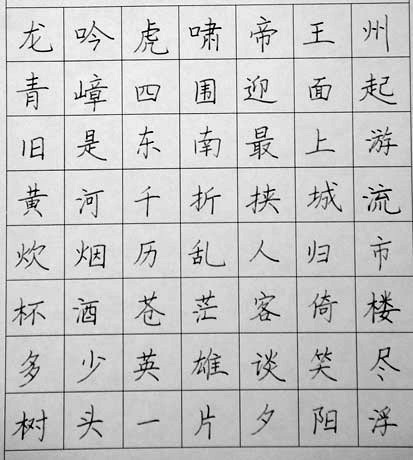 龙吟虎啸帝王州
青嶂四围迎面起
旧是东南最上游
黄河千折挟城流
炊烟历乱人归市
杯酒苍茫客倚楼
多少英雄谈笑尽
树头一片夕阳浮